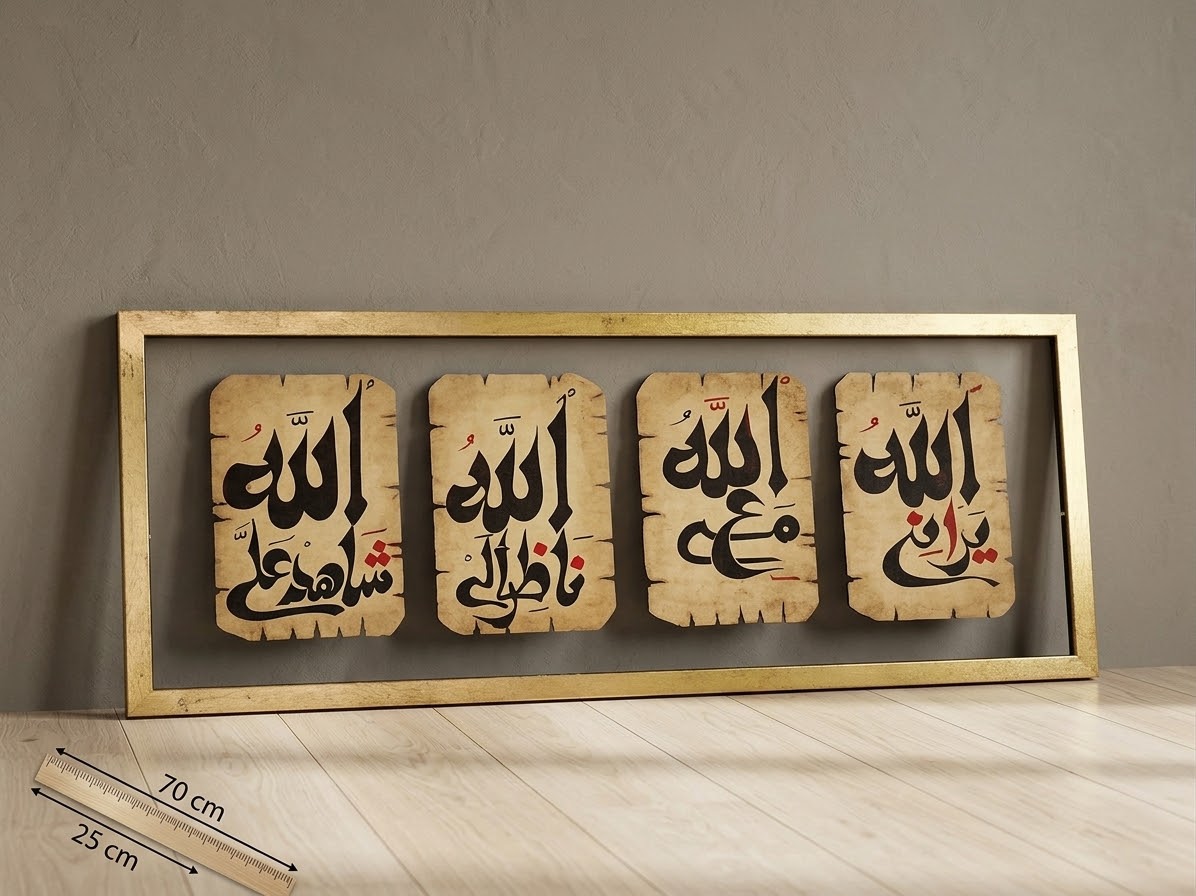 اللَّهُ
يَرَانِي
اللَّهُ
مَعِي
اللَّهُ
نَاظِر الي
اللَّهُ
شَاهِد عَلَيَّ
70 cm
25 cm